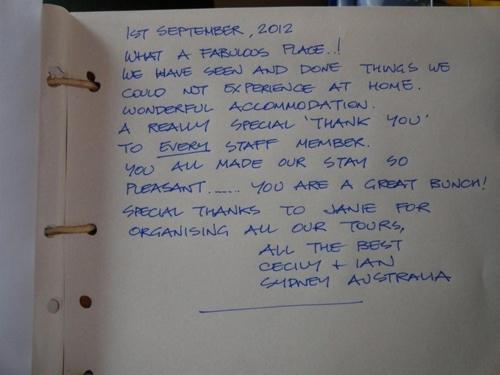 1ST SEPTEMBER, 2012
WHAT A FABULOUS PLACE..!
WE HAVE SEEN AND DONE THINGS WE
COULD NOT EXPERIENCE AT HOME.
WONDERFUL ACCOMMODATION.
A REALLY SPECIAL 'THANK YOU'
TO EVERY STAFF MEMBER.
YOU ALL MADE OUR STAY SO
PLEASANT........ YOU ARE A GREAT BUNCH!
SPECIAL THANKS TO JANIE FOR
ORGANISING ALL OUR TOURS,
ALL THE BEST
CECILY + IAN
SYDNEY AUSTRALIA